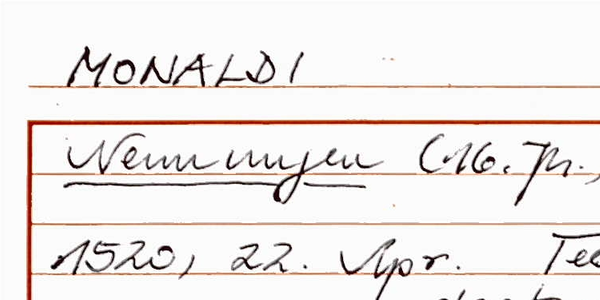 MONALDI
Nennungen (16. Jh.,
1520, 22. Apr. Tec